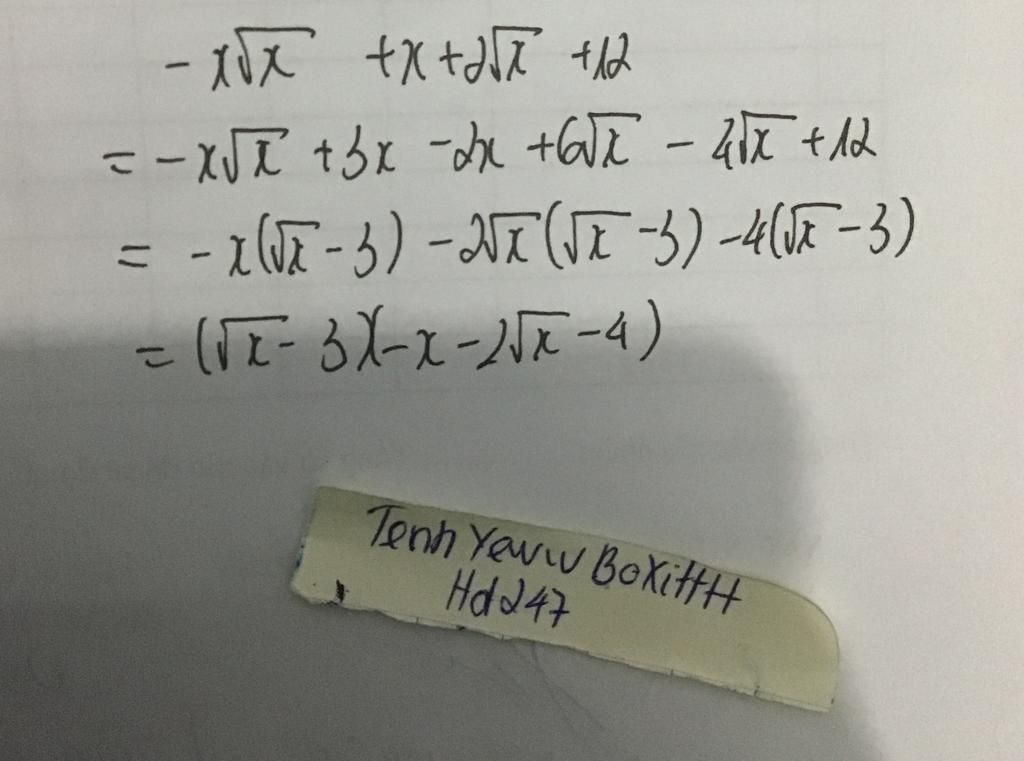 - x√x + x + 2√x + 12
= - x√x + 3x - 2x + 6√x - 4√x + 12
= - x(√x - 3) - 2√x(√x - 3) - 4(√x - 3)
= (√x - 3)(-x - 2√x - 4)
Tenh Yeuw BoXiHH
Hd247